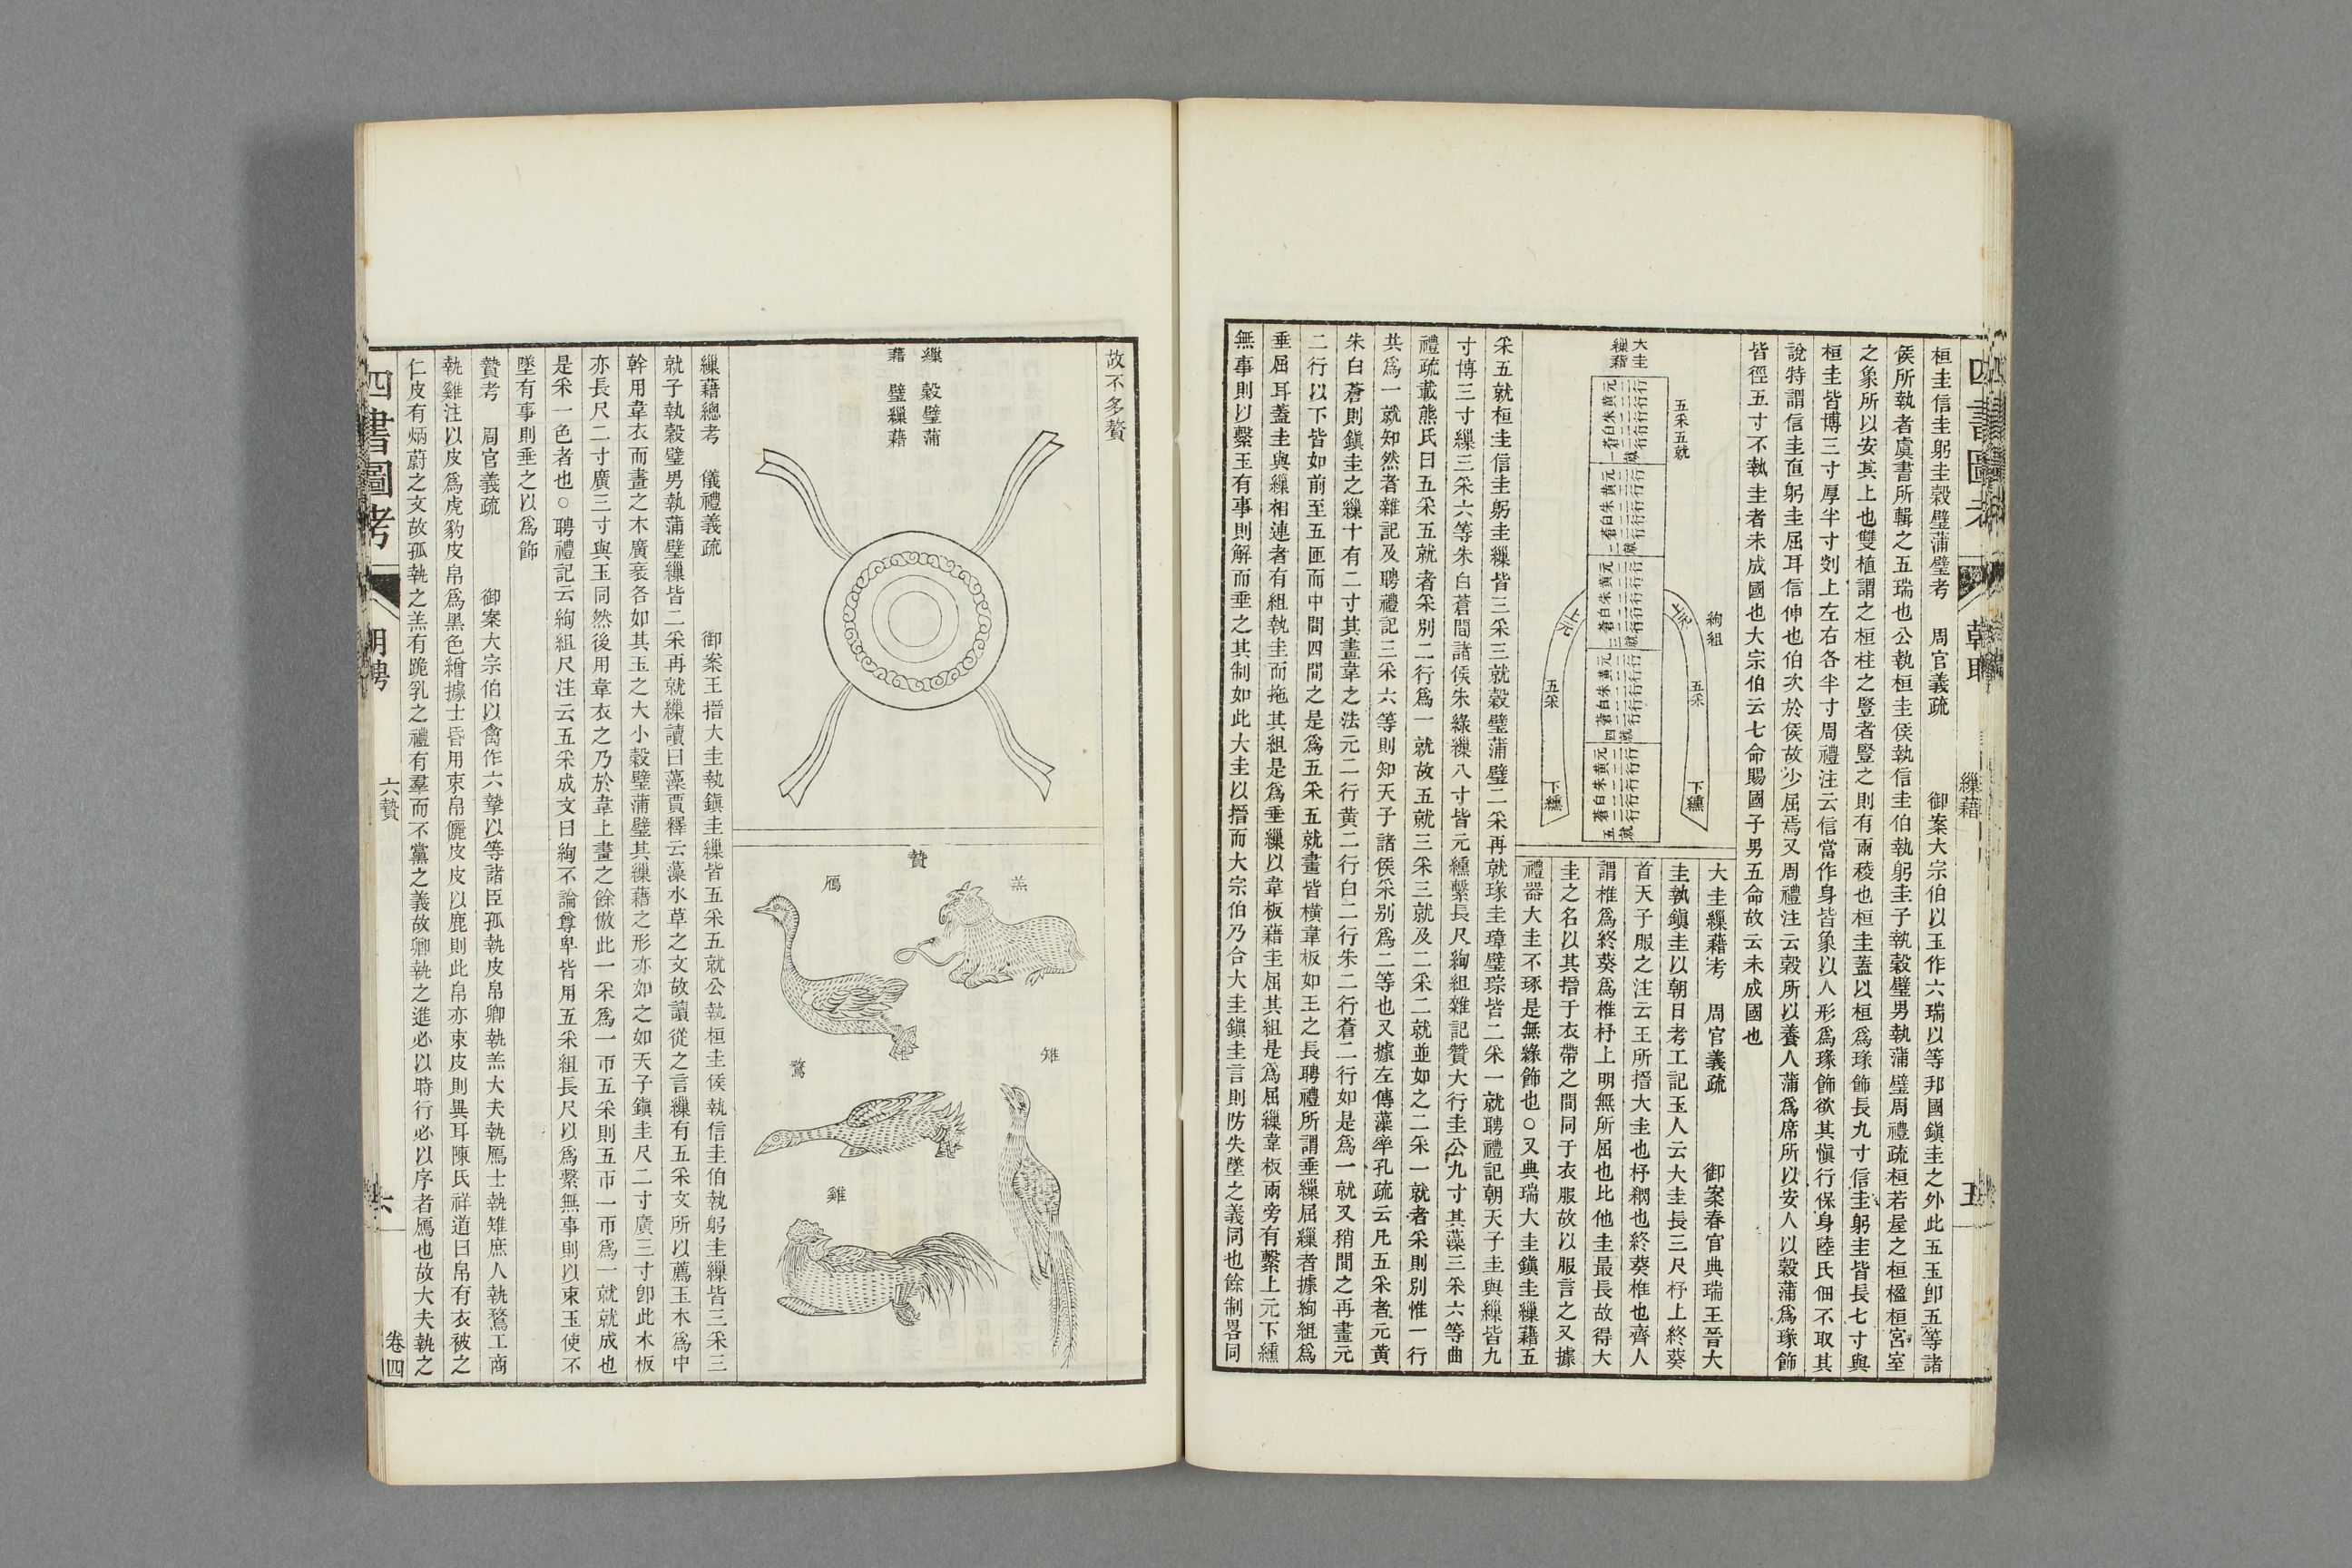 桓圭信圭躬圭穀璧蒲璧考 周官義疏 御案大宗伯以玉作六瑞以等邦國鎭圭之外此五玉卽五等諸
侯所執者虞書所輯之五瑞也公執桓圭侯執信圭伯執躬圭子執穀璧男執蒲璧周禮疏桓若屋之桓楹桓宮室
之象所以安其上也雙植謂之桓柱之豎者豎之則有兩稜也桓圭蓋以桓爲瑑飾長九寸信圭躬圭皆長七寸與
桓圭皆博三寸厚半寸剡上左右各半寸周禮注云信當作身皆象以人形爲瑑飾欲其愼行保身陸氏佃不取其
說特謂信圭直躬圭屈耳信伸也伯次於侯故少屈焉又周禮注云穀所以養人蒲爲席所以安人以穀蒲爲瑑飾
皆徑五寸不執圭者未成國也大宗伯云七命賜國子男五命故云未成國也
大圭
繅藉
五采五就
絢組
上元
五采
下纁
上元
五采
下纁
大圭繅藉考 周官義疏 御案春官典瑞王晉大
圭執鎭圭以朝日考工記玉人云大圭長三尺杼上終葵
首天子服之注云王所搢大圭也杼閷也終葵椎也齊人
謂椎爲終葵爲椎杼上明無所屈也比他圭最長故得大
圭之名以其搢于衣帶之間同于衣服故以服言之又據
禮器大圭不琢是無緣飾也○又典瑞大圭鎭圭繅藉五
采五就桓圭信圭躬圭繅皆三采三就穀璧蒲璧二采再就瑑圭璋璧琮皆二采一就聘禮記朝天子圭與繅皆九
寸博三寸繅三采六等朱白蒼問諸侯朱綠繅八寸皆元纁繫長尺絢組雜記贊大行圭公九寸其藻三采六等曲
禮疏載熊氏曰五采五就者采別二行爲一就故五就三采三就及二采二就並如之二采一就者采則別惟一行
共爲一就知然者雜記及聘禮記三采六等則知天子諸侯采別爲二等也又據左傳藻率孔疏云凡五采者元黃
朱白蒼則鎭圭之繅十有二寸其畫韋之法元二行黃二行白二行朱二行蒼二行如是爲一就又稍間之再畫元
二行以下皆如前至五匝而中間四間之是爲五采五就畫皆橫韋板如王之長聘禮所謂垂繅屈繅者據絢組爲
垂屈耳蓋圭與繅相連者有組執圭而拖其組是爲垂繅以韋板藉圭屈其組是爲屈繅韋板兩旁有繫上元下纁
無事則以繫玉有事則解而垂之其制如此大圭以搢而大宗伯乃合大圭鎭圭言則防失墜之義同也餘制畧同
故不多贅
繅 穀璧蒲
藉 璧繅藉
贄
羔
鴈
雉
鶩
雞
繅藉總考 儀禮義疏 御案王搢大圭執鎭圭繅皆五采五就公執桓圭侯執信圭伯執躬圭繅皆三采三
就子執穀璧男執蒲璧繅皆二采再就繅讀曰藻賈釋云藻水草之文故讀從之言繅有五采文所以薦玉木爲中
幹用韋衣而畫之木廣袤各如其玉之大小穀璧蒲璧其繅藉之形亦如之如天子鎭圭尺二寸廣三寸卽此木板
亦長尺二寸廣三寸與玉同然後用韋衣之乃於韋上畫之餘倣此一采爲一帀五采則五帀一帀爲一就就成也
是采一色者也○聘禮記云絢組尺注云五采成文曰絢不論尊卑皆用五采組長尺以爲繫無事則以束玉使不
墜有事則垂之以爲飾
贄考 周官義疏 御案大宗伯以禽作六摯以等諸臣孤執皮帛卿執羔大夫執鴈士執雉庶人執鶩工商
執雞注以皮爲虎豹皮帛爲黑色繒據士昏用束帛儷皮皮以鹿則此帛亦束皮則異耳陳氏祥道曰帛有衣被之
仁皮有炳蔚之文故孤執之羔有跪乳之禮有羣而不黨之義故卿執之進必以時行必以序者鴈也故大夫執之
四書圖考
朝聘
六贄
六
卷四